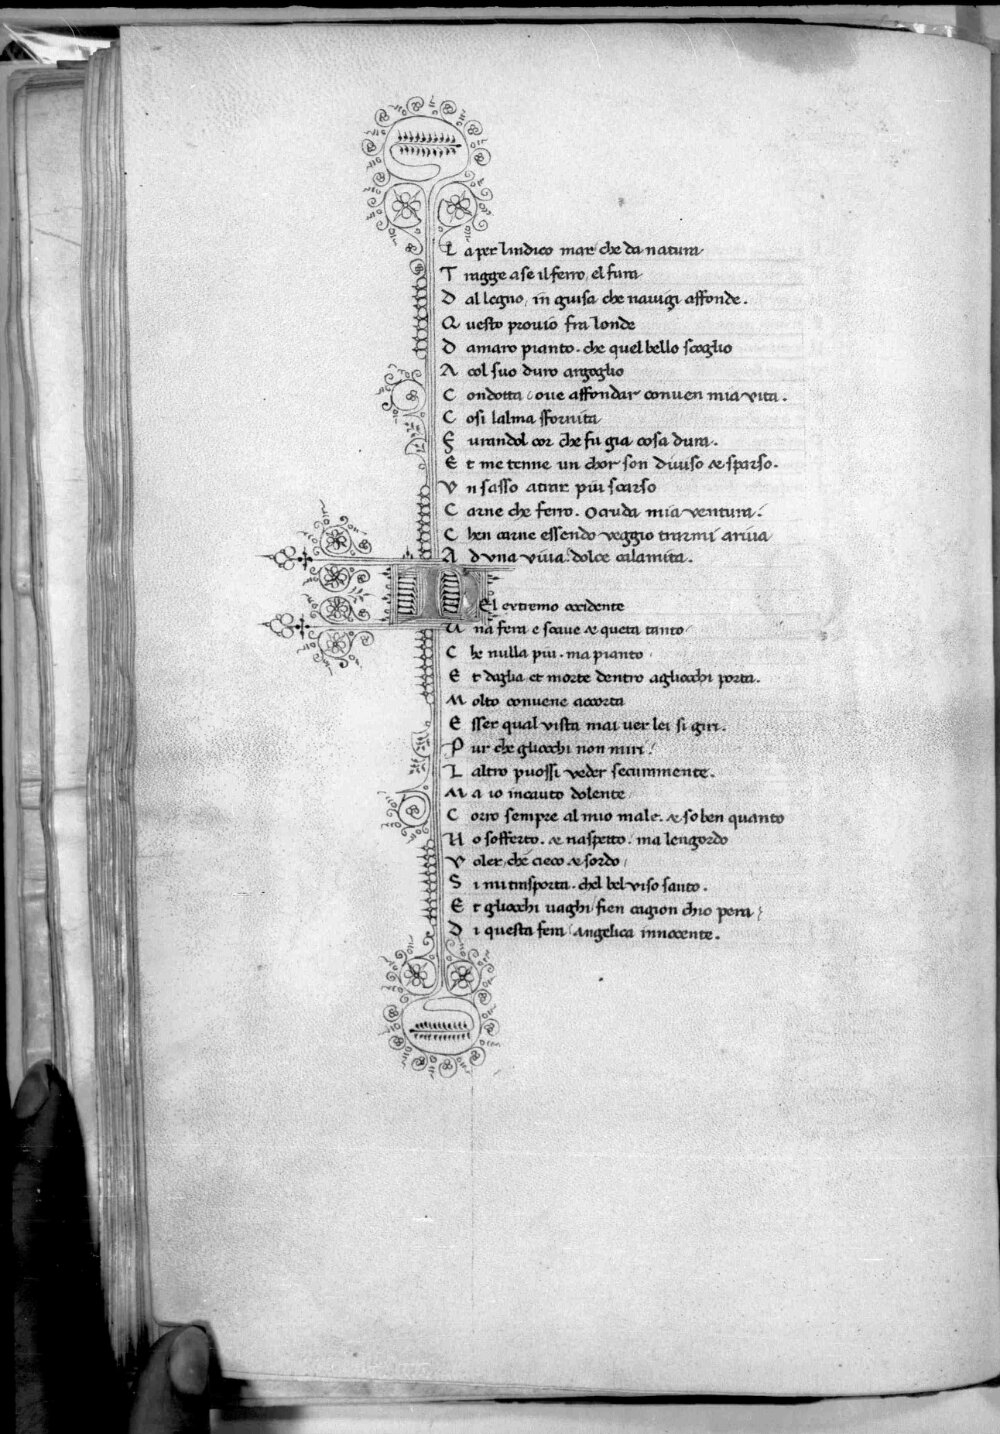 L a per lindico mar che da natura
T ragge a se il ferro, el fura
D al legno, in guisa che nauigi affonde.
Q uesto prouio fra londe
D amaro pianto. che quel bello scoglio
A col suo duro argoglio
C ondotta, oue affondar conuen mia vita.
C osi lalma sfornita
F urandol cor che fu gia cosa dura.
E t me tenne un chor son diuiso & sparso.
V n sasso a trar piu scarso
C arne che ferro. O cruda mia ventura.
C hen carne essendo veggio trarmi ariua
A d vna viua dolce calamita.
N El extremo occidente
U na fera e soaue & queta tanto
C he nulla piu. ma pianto
E t doglia et morte dentro agliocchi porta.
M olto conuene accorta
E sser qual vista mai uer lei si giri.
P ur che gliocchi non miri.
L altro puossi veder securamente.
M a io incauto dolente
C orro sempre al mio male. & so ben quanto
N o sofferto. & naspetto. ma lengordo
V oler, che cieco & sordo
S i mi trasporta. chel bel viso santo.
E t gliocchi uaghi fien cagion chio pera
D i questa fera angelica innocente.